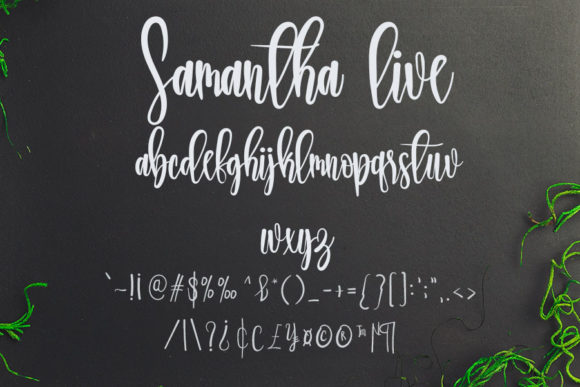 Samantha live
abcdefghijklmnopqrstuv
wxyz
`~!¡@#$%‰^&*()_-+={}[]:';",.<>
/|\?¿¢C£¥¤©®™¶